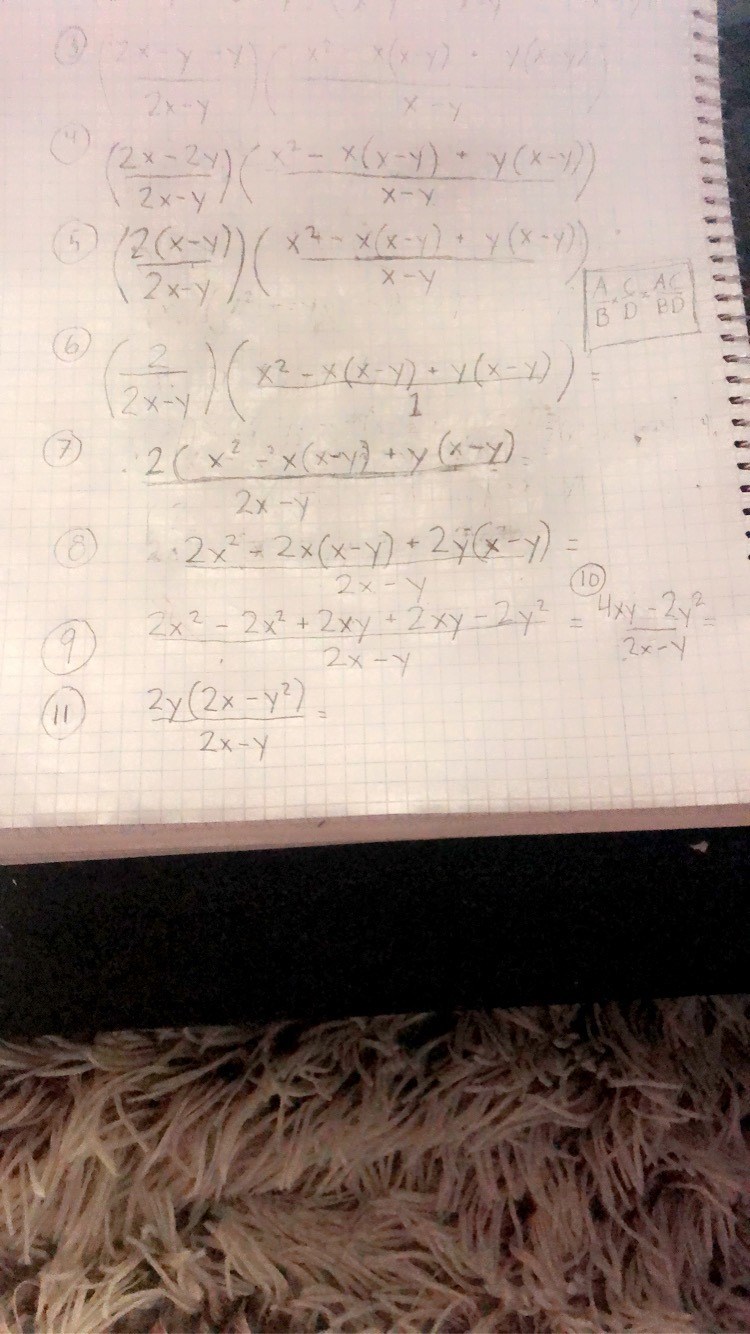 ③ (2x-y-y / 2x-y)(x² - x(x-y) + y(x-y) / x-y)
④ (2x-2y / 2x-y)(x² - x(x-y) + y(x-y) / x-y)
⑤ (2(x-y) / 2x-y)(x² - x(x-y) + y(x-y) / x-y)
A/B · C/D = AC/BD
⑥ (2 / 2x-y)(x² - x(x-y) + y(x-y) / 1) =
⑦ 2(x² - x(x-y) + y(x-y) / 2x-y
⑧ 2x² - 2x(x-y) + 2y(x-y) / 2x-y =
⑨ 2x² - 2x² + 2xy + 2xy - 2y² / 2x-y = ⑩ 4xy - 2y² / 2x-y =
⑪ 2y(2x-y²) / 2x-y =